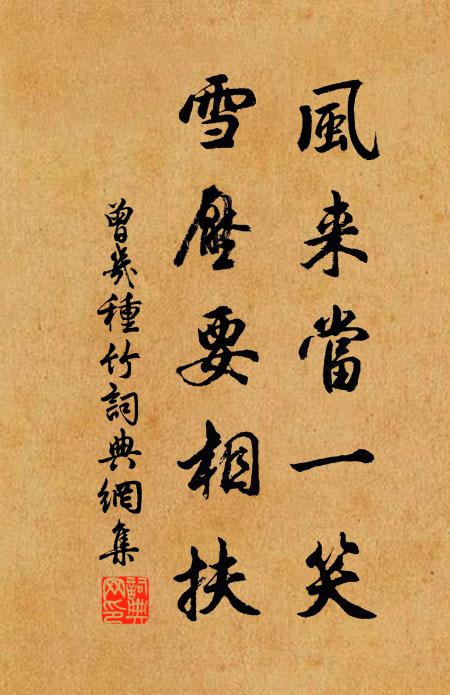 風来當一笑
雪壓要相扶
曾幾種竹詞典網集
詞典網印